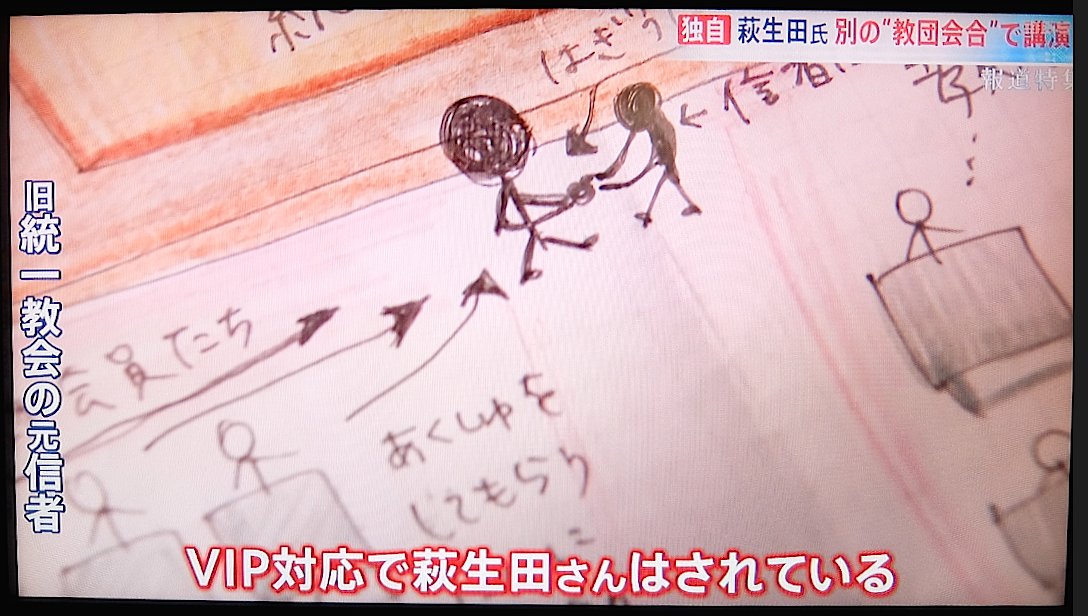 独自 萩生田氏 別の“教団会合”で講演
報道特集
旧統一教会の元信者
はぎ
←信者
会員たち
あくしゅを
してもらう
に
VIP対応で萩生田さんはされている